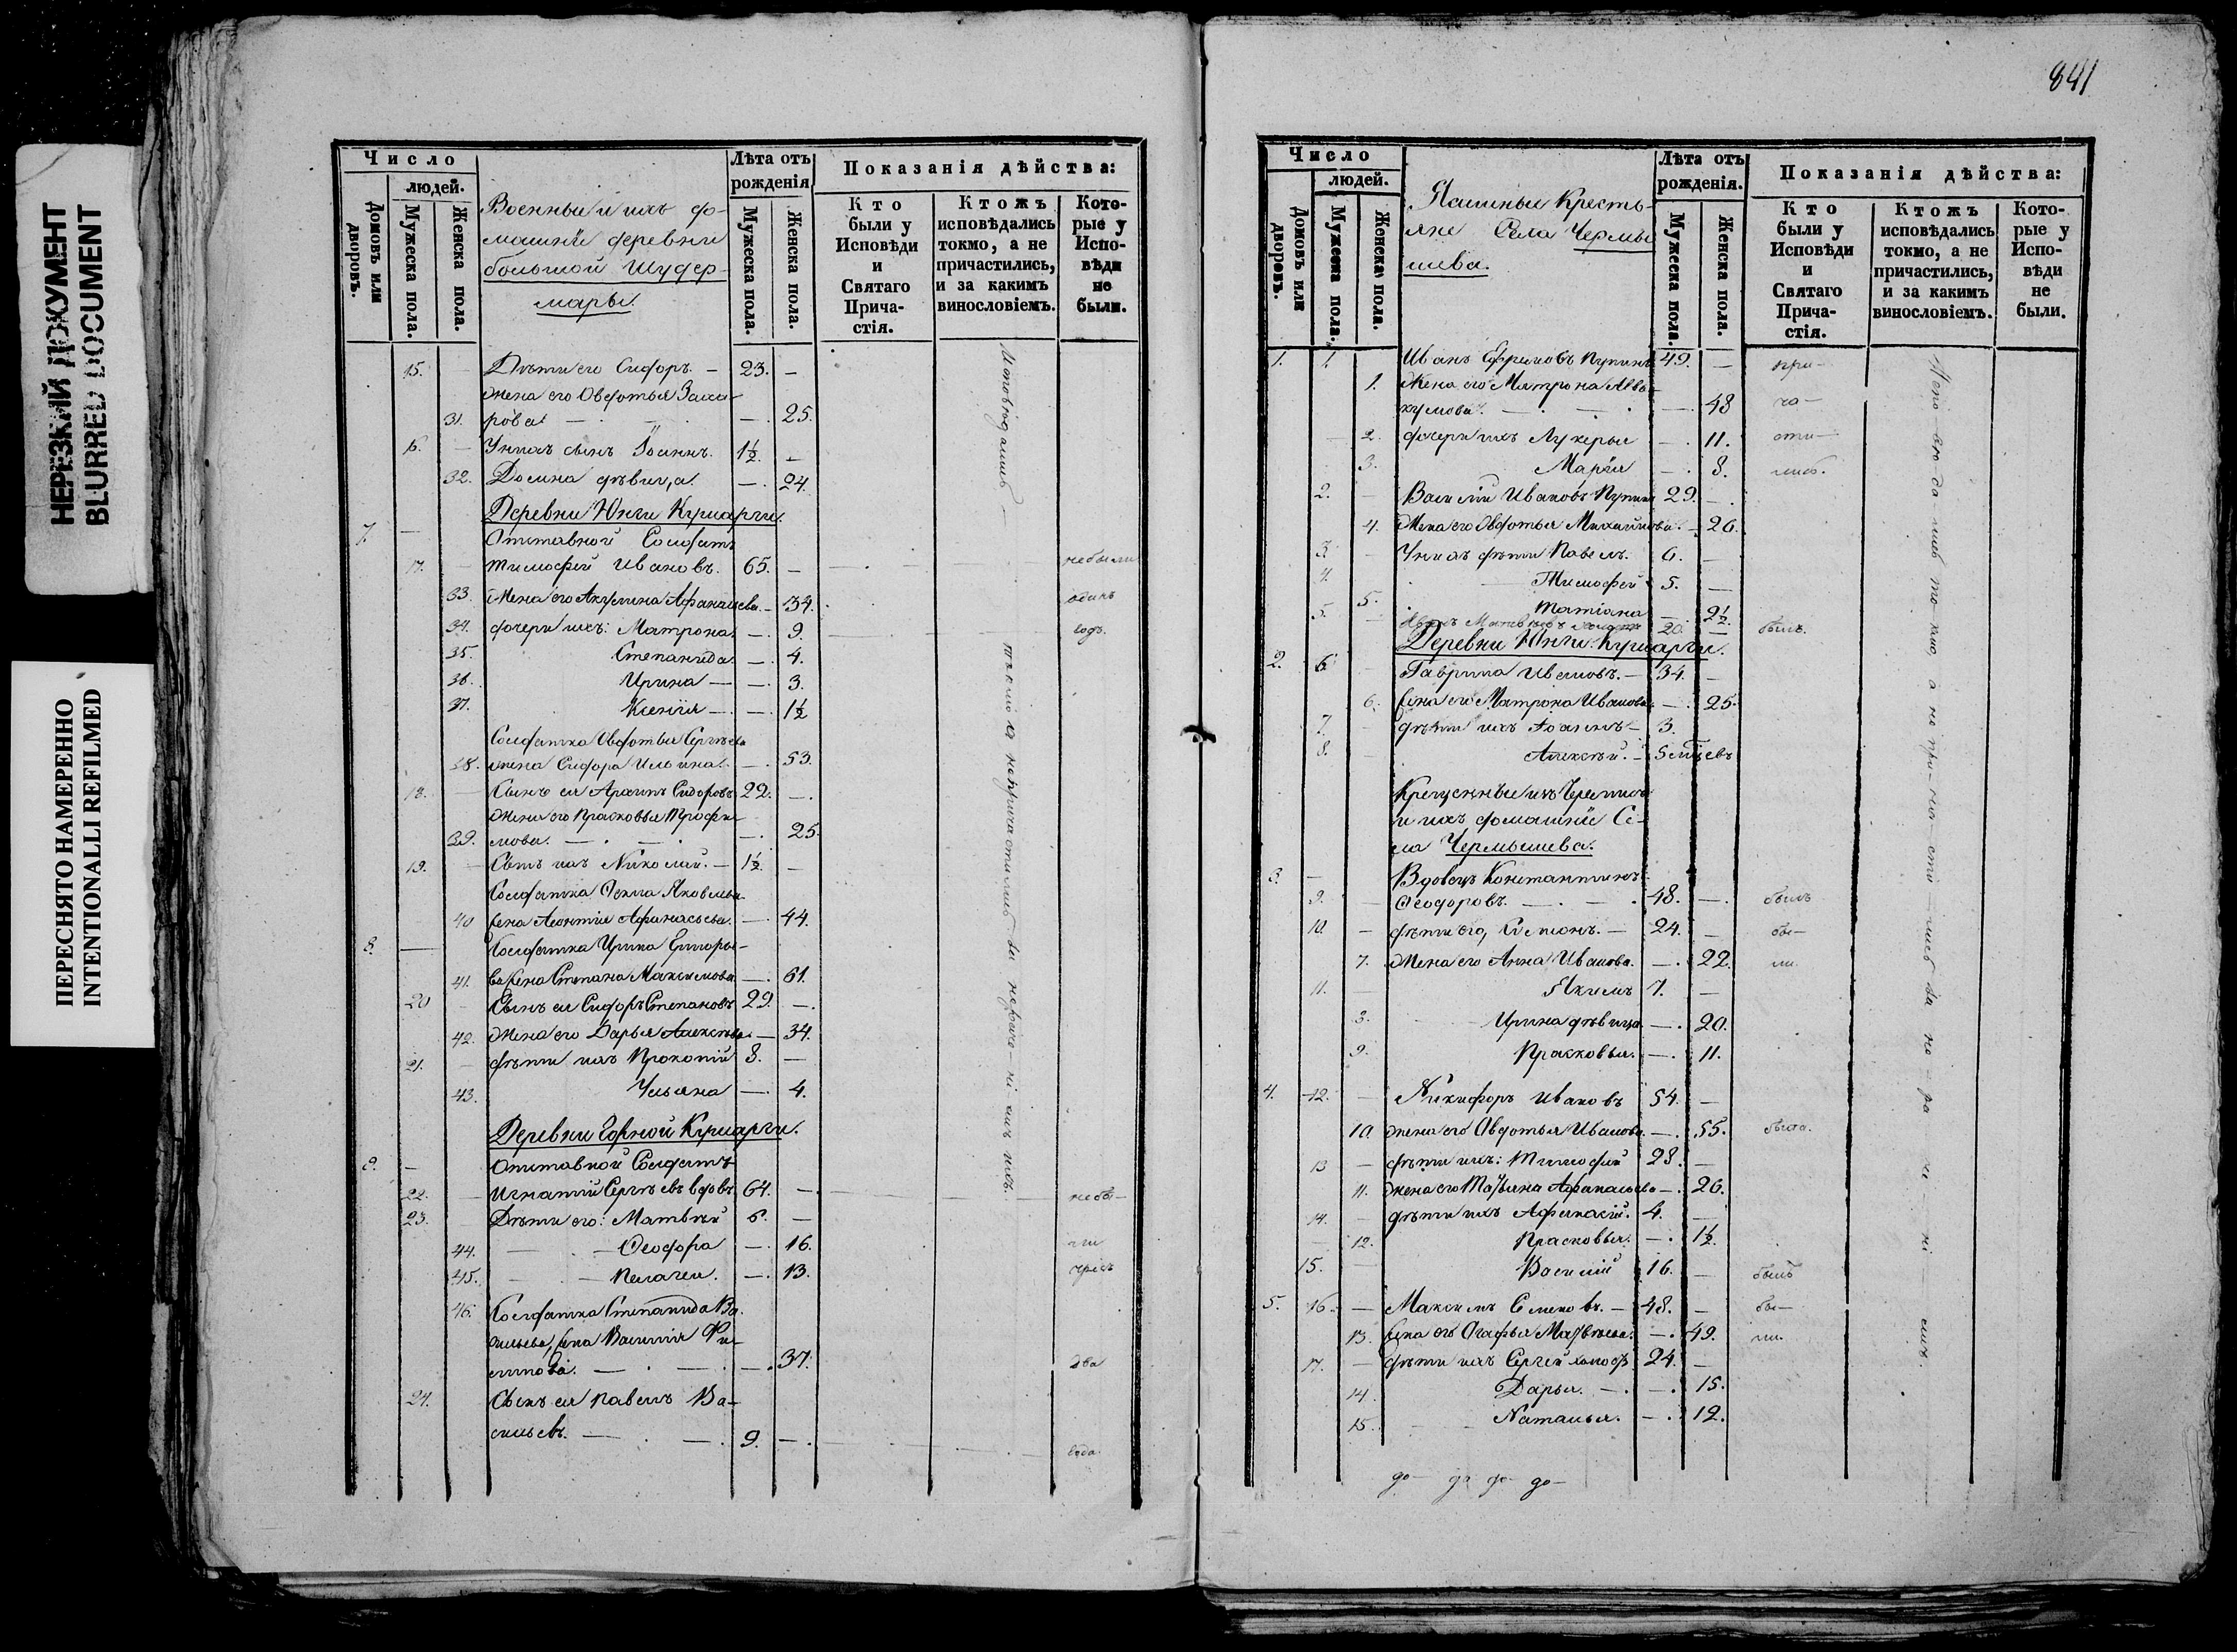 НЕРЕЗКИЙ ДОКУМЕНТ
BLURRED DOCUMENT
ПЕРЕСНЯТО НАМЕРЕННО
INTENTIONALLI REFILMED
Число
людей.
Домовъ или дворовъ.
Мужеска пола.
Женска пола.
Военныи и ихъ до-
машніи деревни
большой Шудер-
мары.
Лѣта отъ
рожденія
Мужеска пола.
Женска пола.
Показанія дѣйства:
Кто
были у
Исповѣди
и
Святаго
Прича-
стія.
Ктожъ
исповѣдались
токмо, а не
причастились,
и за какимъ
винословіемъ.
Кото-
рые у
Испо-
вѣди
не
были.
15. Дѣти его Сидоръ. — 23. —
жена его Овдотья Заха-
31. рова — — 25.
16. У нихъ сынъ Іоаннъ. 1½ —
32. Домна дѣвица. — 24.
Деревни Юнги Кушарги.
7. — Отставной Солдатъ
17. Тимофей Ивановъ. 65. — небыли
33. Жена его Акулина Афанасьева. — 34. одинъ
34. дочери ихъ: Матрона. — 9. годъ.
35. Степанида. — 4.
36. Ирина — — 3.
37. Ксенія — — 1½
Солдатка Овдотья Сергѣева
38. жена Сидора Ильина. — 53.
18. Сынъ ея Архипъ Сидоровъ 22. —
Жена его Прасковья Трофи-
39. мова. — — 25.
19. Сынъ ихъ Николай. — 1½ —
Солдатка Фекла Яковлева
40 жена Леонтія Афанасьева. — 44.
8. — Солдатка Ирина Григорье-
41. ва жена Степана Максимова — 61.
20 Сынъ ея Сидоръ Степановъ 29. —
42. Жена его Дарья Алексѣева. — 34.
21. дѣти ихъ Прокопій 8. —
43. Ульяна — 4.
Деревни Горной Кушарги.
9. — Отставной Солдатъ
22. Игнатій Сергѣевъ вдовъ 64. — небы-
23. Дѣти его: Матвѣй 6. —
44. — Феодора — 16. ли
45. — Пелагея. — 13. чрезъ
46. Солдатка Степанида Ва-
сильева, жена Василія Фи-
липпова. — — 37. два
24. Сынъ ея Павелъ Ва-
сильевъ. — 9. — года.
Исповѣдались — токмо а непричастились за нерасположеніемъ
841
Число
людей.
Домовъ или дворовъ.
Мужеска пола.
Женска пола.
Пашинные Кресть-
яне Села Чермы-
шева.
Лѣта отъ
рожденія.
Мужеска пола.
Женска пола.
Показанія дѣйства:
Кто
были у
Исповѣди
и
Святаго
Прича-
стія.
Ктожъ
исповѣдались
токмо, а не
причастились,
и за какимъ
винословіемъ.
Кото-
рые у
Испо-
вѣди
не
были.
1. 1. Иванъ Ефимовъ Пупинъ 49. — при-
1. Жена его Матрона Авва-
кумова. — — 48 ча-
2. дочери ихъ Лукерья — 11. сти-
3. Марія — 8. лись.
2. — Василій Ивановъ Пупинъ 29. —
4. Жена его Овдотья Михайлова. — 26.
3. — У нихъ дѣти Павелъ. 6. —
4. Тимофей 5. —
5. Татіана — 2½
5. 20. — былъ.
Деревни Юнги Кушарги.
2. 6 — Гаврила Ивановъ. — 34. —
6. жена его Матрона Иванова. — 25.
7. — дѣти ихъ Іоаннъ — 3.
8. — Алексѣй. — 5 мцевъ
Крещеныеизъ Черемисъ
и ихъ домашніе Се-
ла Чермышева.
3. — Вдовецъ Константинъ
9. — Феодоровъ. — 48. — былъ
10. — дѣти его, Симеонъ. — 24. — бы-
7. Жена его Анна Иванова. — 22. ли.
11. — Якимъ 7. —
8. Ирина дѣвица — 20.
9. Прасковья. — 11.
4. 12. — Никифоръ Ивановъ 54. —
10. жена его Авдотья Иванова. — 55. была.
13 — дѣти ихъ: Тимофей 28. —
11. жена его Татьяна Афанасьева — 26.
14. — дѣти ихъ Афанасій. 4. —
12. Прасковья. — 1½
15. — Василій 16. — былъ
5. 16. — Максимъ Семеновъ. — 48. — бы-
13. жена его Агафья Матвѣева. — 49. ли.
17. — дѣти ихъ Сергей холостъ 24. —
14. Дарья. — — 15.
15. Наталья. — 12.
до— да до до—